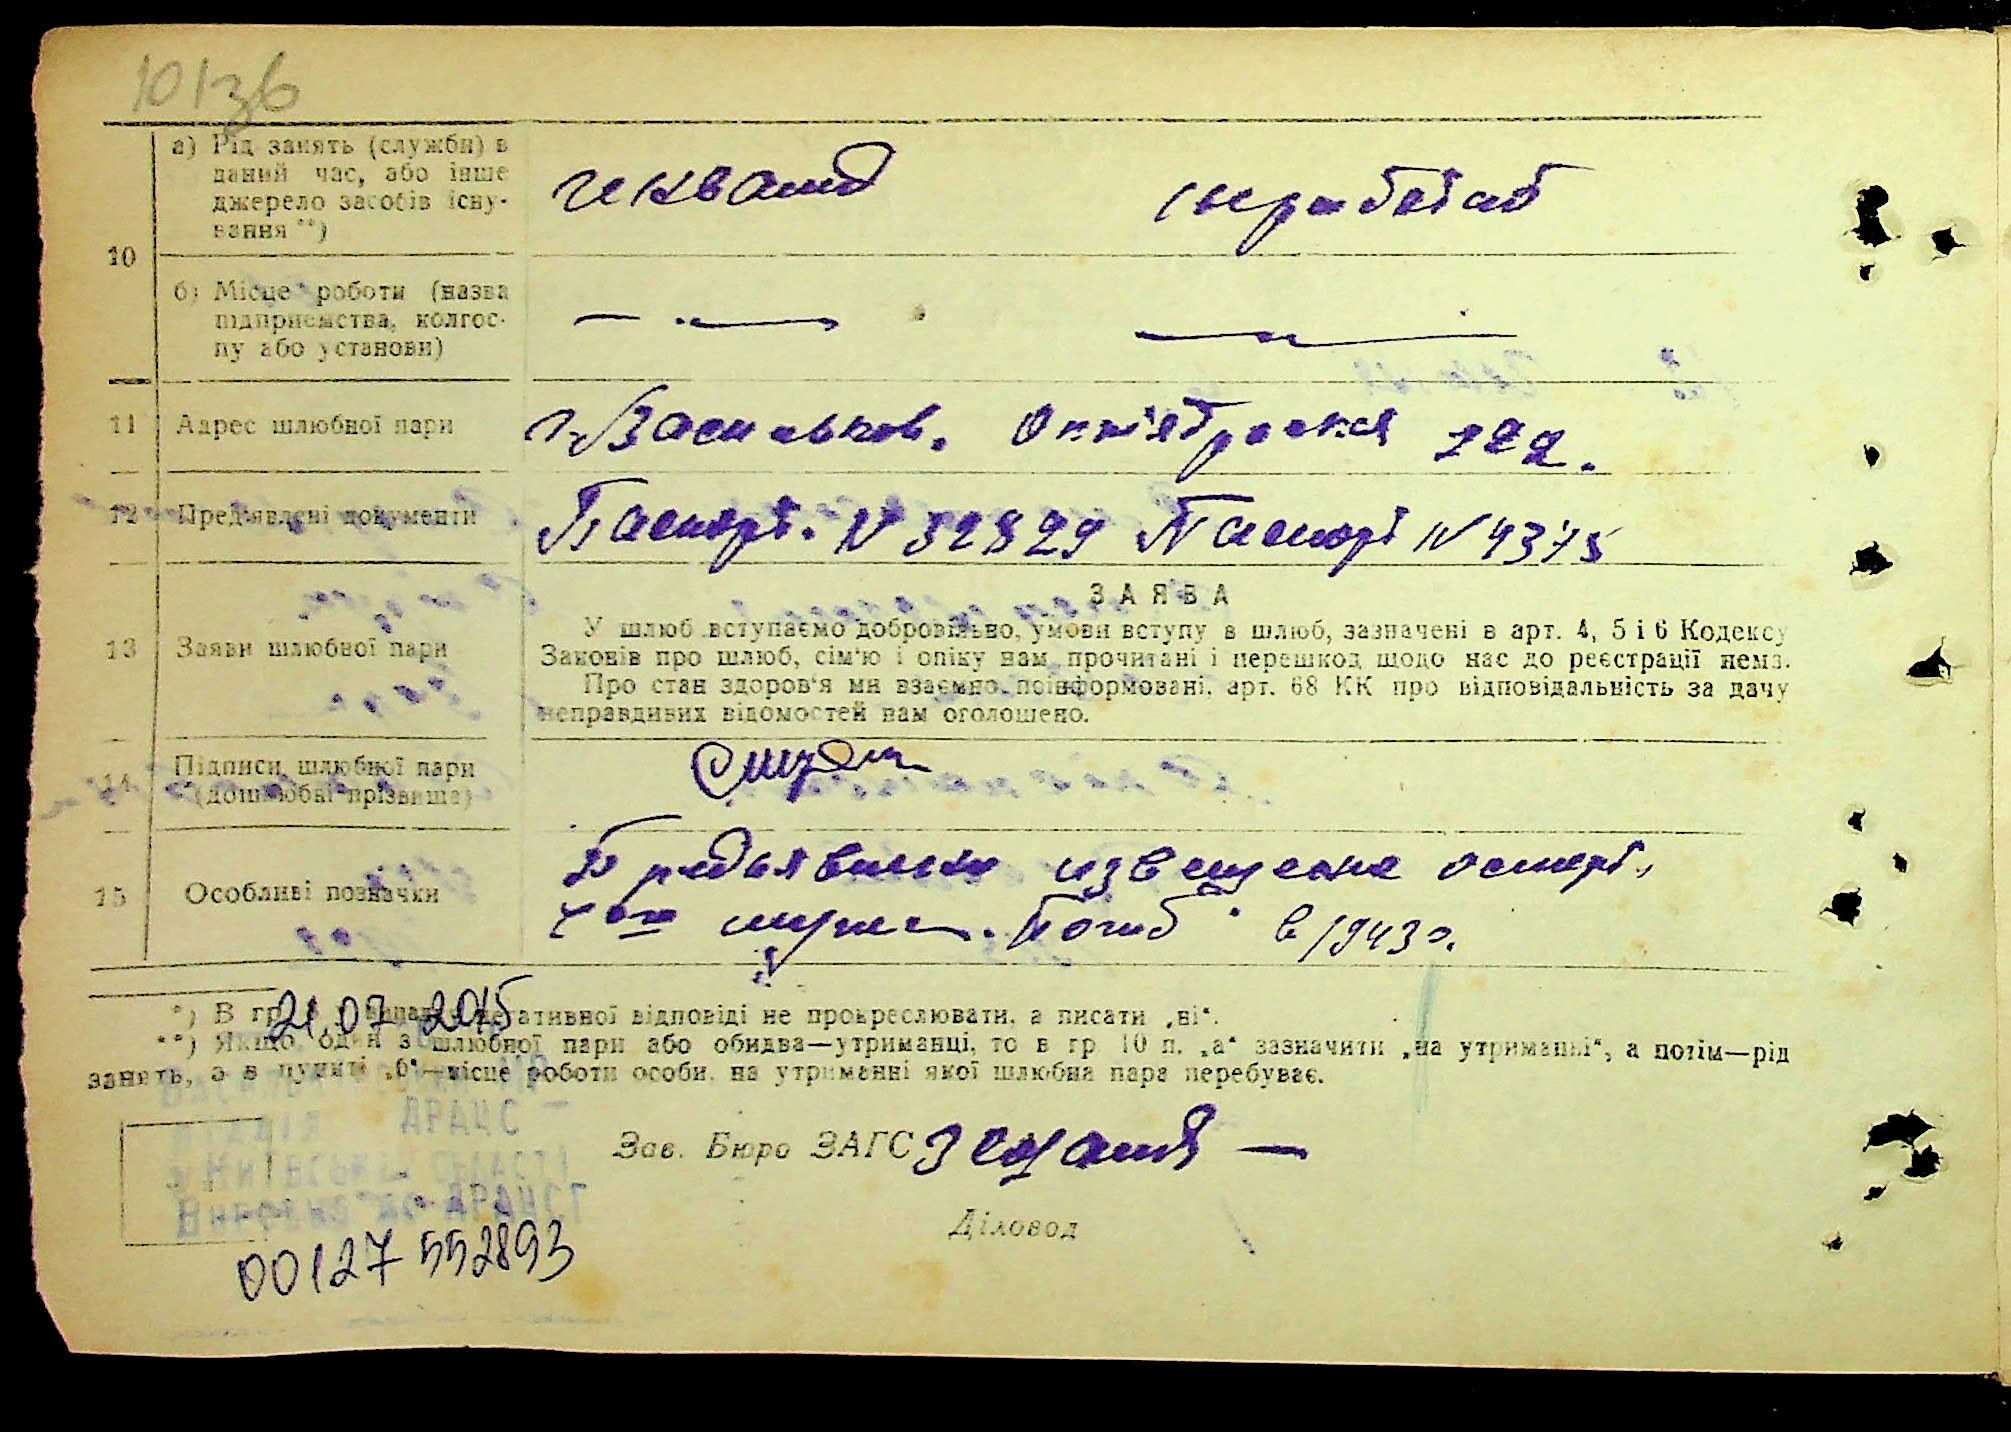 101зв
а) Рід занять (служби) в
даний час, або інше
джерело засобів існу-
вання **)
10
б) Місце роботи (назва
підприємства, колгос-
пу або установи)
11 Адрес шлюбної пари г. Васильков. Октябрьская
12 Пред'явлені документи Паспорт. N 32829 Паспорт N 4375
ЗАЯВА
13 Заяви шлюбної пари
У шлюб вступаємо добровільно, умови вступу в шлюб, зазначені в арт. 4, 5 і 6 Кодексу
Законів про шлюб, сім'ю і опіку нам прочитані і перешкод щодо нас до реєстрації нема.
Про стан здоров'я ми взаємно поінформовані, арт. 68 КК про відповідальність за дачу
неправдивих відомостей нам оголошено.
14 Підписи шлюбної пари
(дошлюбні прізвища)
15 Особливі позначки
мужа. Погиб в 1943 г.
*) В гр. негативної відповіді не прокреслювати, а писати „ні“.
21.07 2015
**) Якщо один з шлюбної пари або обидва—утриманці, то в гр. 10 п. „а“ зазначити „на утриманні“, а потім—рід
занять, а в пункті „б“—місце роботи особи, на утриманні якої шлюбна пара перебуває.
ДРАЦС
Зав. Бюро ЗАГС
Діловод
00127552893